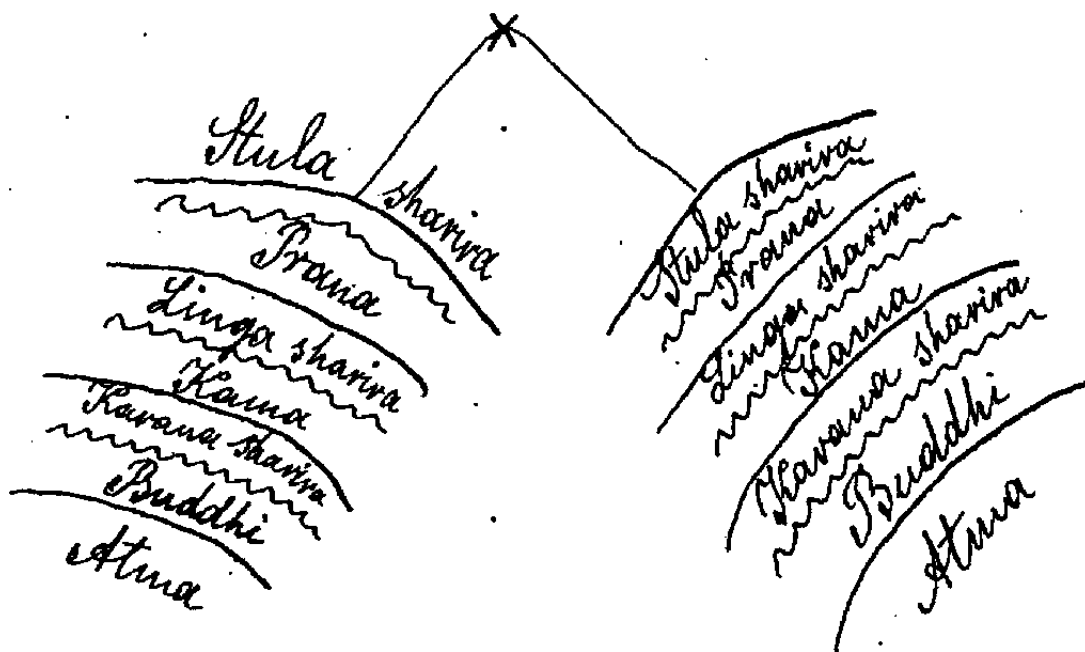 ×
Stula sharira
Prana
Linga sharira
Kama
Karana sharira
Buddhi
Atma
Stula sharira
Prana
Linga sharira
Kama
Karana sharira
Buddhi
Atma